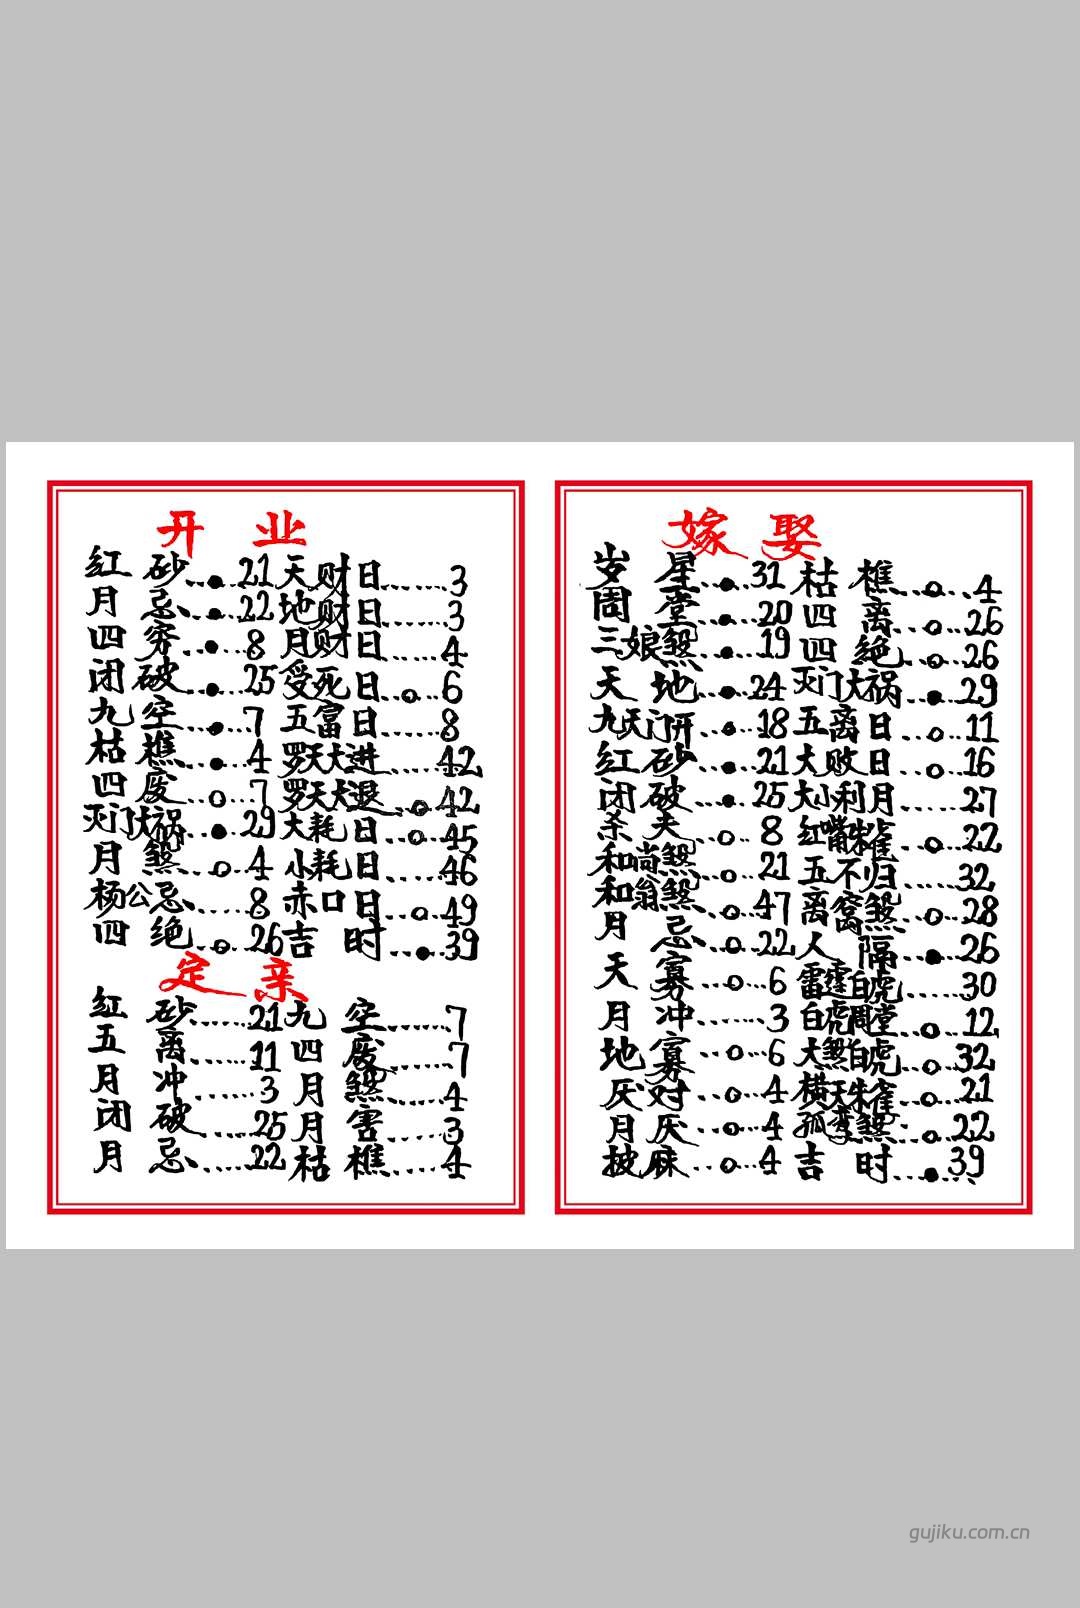 开 业
红 砂...●...21 天财日......3
月 忌...●...22 地财日......3
四 穷...●...8 月财日......4
闭 破...●...25 受死日..○..6
九 空...●...7 五富日......8
枯 樵...●...4 罗天大进......42
四 废...○...7 罗天大退..○42
灭门大祸..●...29 大耗日...○...45
月 煞...○...4 小耗日......46
杨公忌......8 赤口日...○...49
四 绝...○...26 吉 时...●...39
定 亲
红 砂......21 九 空......7
五 离......11 四 废......7
月 冲......3 月 煞......4
闭 破......25 月 害......3
月 忌......22 枯 樵......4
嫁 娶
岁 星...●...31 枯 樵...○...4
周 堂...●...20 四 离...○...26
三娘煞...●...19 四 绝...○...26
天 地...●...24 灭门大祸...●...29
九天门开...●...18 五离日...○...11
红 砂...●...21 大败日...○...16
闭 破...●...25 大小利月......27
杀 夫...○...8 红嘴朱雀...○...22
和尚煞...○...21 五不归......32
和翁煞...○...47 离窝煞...○...28
月 忌...○...22 人 隔...●...26
天 寡...○...6 雷霆白虎......30
月 冲......3 白虎周堂...○...12
地 寡...○...6 大煞白虎...○...32
厌 对...○...4 横天朱雀...○...21
月 厌...○...4 孤鸾煞...○...22
披 麻...○...4 吉 时...●...39
gujiku.com.cn